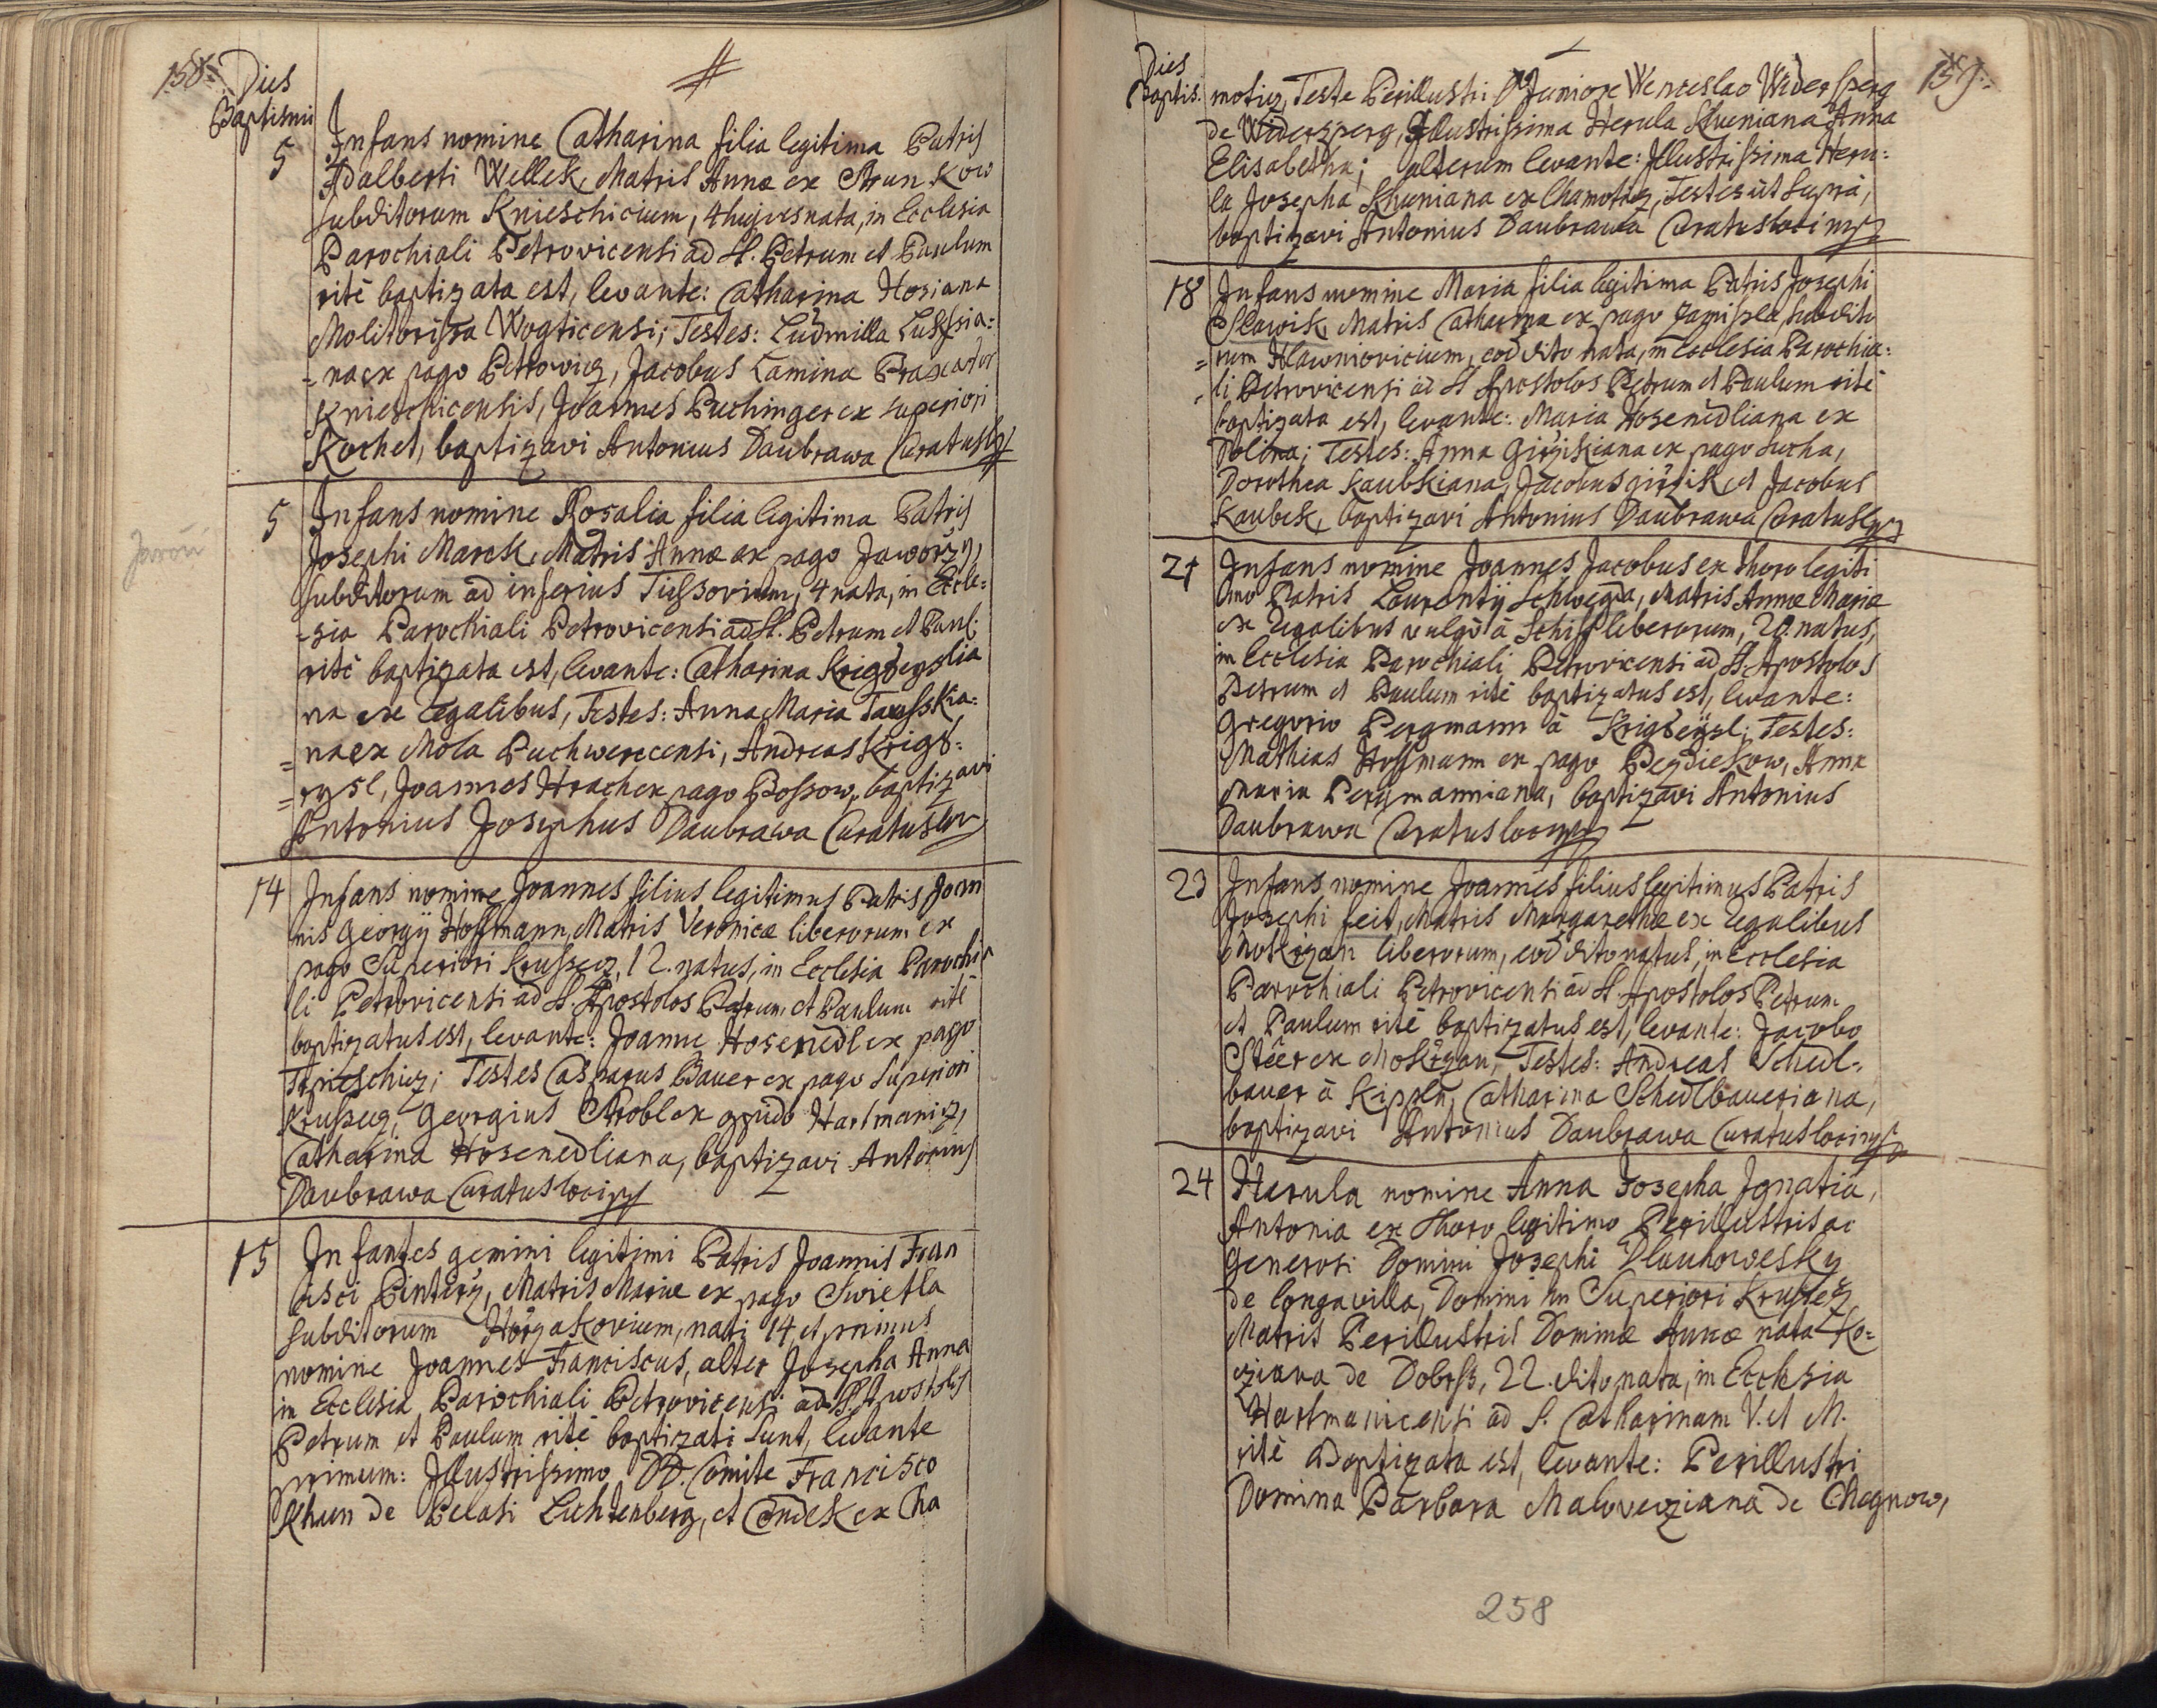 158.
Dies
Baptismi
5 Infans nomine Catharina filia legitima Patris
Adalberti Wellek, Matris Annæ ex Strunkow
subditorum Knieschicium, 4 hujus nata, in Ecclesia
Parochiali Petrovicensi ad SS. Petrum et Paulum
ritè baptizata est, levante: Catharina Hosiana
Molitorissa Wogticensi; Testes: Ludmilla
=na ex pago Petrowicz, Jacobus Lamina Braxator
Knieschicensis, Joannes Puchinger ex superiori
Kochet, baptizavi Antonius Daubrawa Curatus
Javoři
5 Infans nomine Rosalia filia legitima Patris
Josephi Marek, Matris Annæ ex pago Jaworzy,
subditorum ad inferius 4 nata, in Eccle=
-sia Parochiali Petrovicensi ad SS. Petrum et Paul:
ritè baptizata est, levante: Catharina Krigseyslia
na ex Regalibus, Testes: Anna Maria
=na ex Mola Puchwerecensi, Andreas Krigs=
=eysl, Joannes Hrach ex pago Possow, baptizavi
Antonius Josephus Daubrawa Curatus
14 Infans nomine Joannes filius legitimus Patris Joan
nis Georgij Hoffmann, Matris Veronicæ liberorum ex
pago Superiori Krussecz, 12. natus, in Ecclesia Parochia
li Petrovicensi ad SS. Apostolos Petrum et Paulum ritè
baptizatus est, levante: Joanne Hosenedl ex pago
Testes Casparus Bauer ex pago Superiori
Krussecz, Georgius Strobl ex oppido Hartmanicz,
Catharina Hosenedliana, baptizavi Antonius
Daubrawa Curatus loci
15 Infantes gemini legitimi Patris Joannis Fran
cisci Pinterz, Matris Mariæ ex pago Swietla
subditorum nati 14 et primus
nomine Joannes Franciscus, alter Josepha Anna
in Ecclesia Parochiali Petrovicensi ad SS. Apostolos
Petrum et Paulum ritè baptizati sunt, levante
primum: Illustrissimo DD. Comite Francisco
Khun de Belasi Lichtenberg, et ex Cha
159.
Dies
Baptis.
motiz, Teste Perillustri D Juniore Wenceslao Widersperg
de Widerzperg, Illustrissima Herula Khueniana Anna
Elisabetha; alterum levante: Illustrissima Heru=
la Josepha Khuniana ex Chamotiz, Testes ùt suprà,
baptizavi Antonius Daubrawa Curatus loci
18 Infans nomine Maria filia legitima Patris Josephi
Slawik, Matris Catharina ex pago subdito
=rum Hlawniovicium, eod dito nata, in Ecclesia Parochia=
-li Petrovicensi ad SS Apostolos Petrum et Paulum ritè
baptizata est, levante: Maria Hosenedliana ex
Dolina; Testes: Anna Girzikiana ex pago Sucha,
Dorothea Kaubkiana, Jacobus Girzik, et Jacobus
Kaubek, baptizavi Antonius Daubrawa Curatus
21 Infans nomine Joannes Jacobus ex thoro legiti
mo Patris Laurentij Schwegda, Matris Annæ Mariæ
ex Regalibus vulgò à Schiff liberorum, 20. natus,
in Ecclesia Parochiali Petrovicensi ad SS. Apostolos
Petrum et Paulum ritè baptizatus est, levante:
Gregorio Pergmann à Krigseysl; Testes:
Mathias Hoffmann ex pago Pezdiekow, Anna
Maria Pergmanniana, baptizavi Antonius
Daubrawa Curatus loci
23 Infans nomine Joannes filius legitimus Patris
Josephi feit, Matris Margarethæ ex Regalibus
Mokrzan liberorum, eod dito natus, in Ecclesia
Parochiali Petrovicensi ad SS. Apostolos Petrum
et Paulum ritè baptizatus est, levante: Jacobo
Steer ex Mokrzan, Testes: Andreas Schedl-
bauer à Catharina Schedlbaueriana,
baptizavi Antonius Daubrawa Curatus loci
24 Herula nomine Anna Josepha Ignatia,
Antonia ex thoro legitimo Perillustris ac
Generosi Domini Josephi Dlauhowesky
de longavilla, Domini in Superiori Krussecz
Matris Perillustris Dominæ Annæ nata Ko=
cziana de Dobrss, 22. dito nata, in Ecclesia
Hartmanicensi ad S. Catharinam V. et M.
ritè baptizata est, levante: Perillustri
Domina Barbara Maloveziana de Chegnow,
258